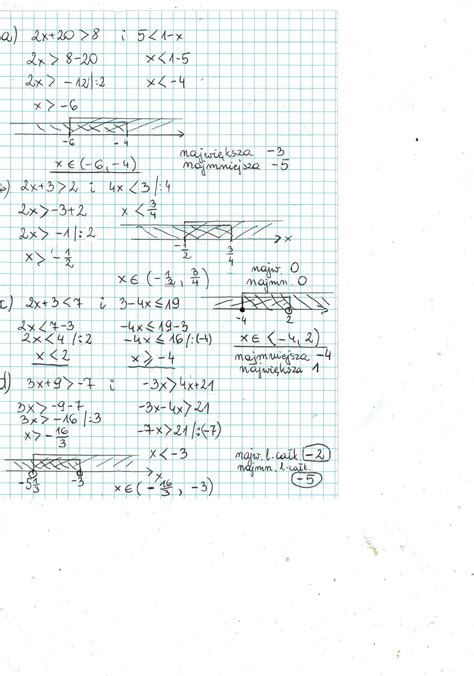 a) 2x+20>8 i 5<1-x
2x>8-20 x<1-5
2x>-12/:2 x<-4
x>-6
-6 -4
x∈(-6,-4)
największa -3
najmniejsza -5
b) 2x+3>2 i 4x<3/:4
2x>-3+2 x<3/4
2x>-1/:2
x>-1/2
-1/2 3/4 x
x∈(-1/2, 3/4)
najw. 0
najmn. 0
c) 2x+3<7 i 3-4x≤19
2x<7-3 -4x≤19-3
2x<4/:2 -4x≤16/:(-4)
x<2 x≥-4
-4 2
x∈<-4,2)
najmniejsza -4
największa 1
d) 3x+9>-7 i -3x>4x+21
3x>-9-7 -3x-4x>21
3x>-16/:3 -7x>21/:(-7)
x>-16/3 x<-3
-5 1/3 -3 x
x∈(-16/3, -3)
najw. l.całk. -2
najmn. l.całk.
-5